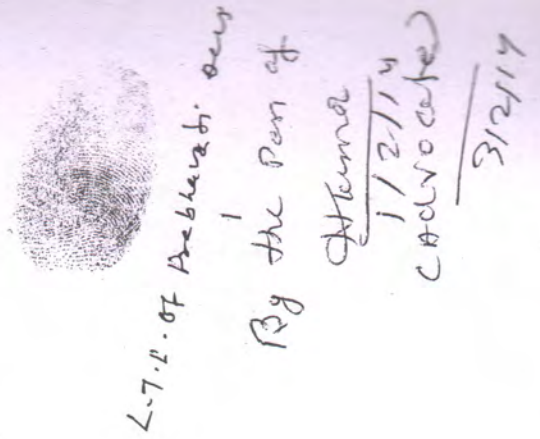 L.T.I. of Prabhavati
By the Pen of
1/2/14
(Advocate)
3/2/14